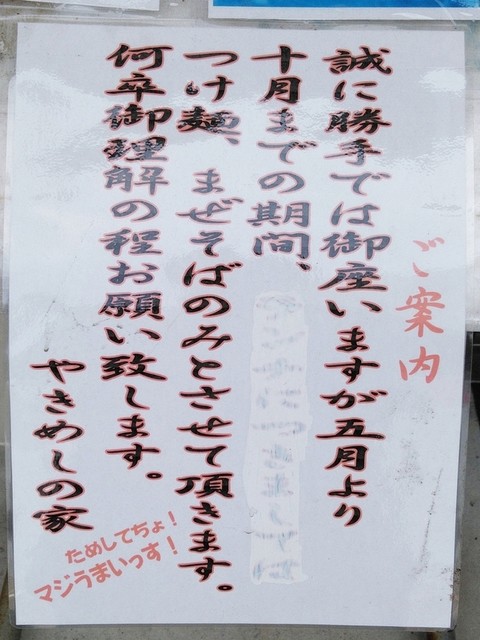 ご案内
誠に勝手では御座いますが五月より
十月までの期間、
つけ麺、まぜそばのみとさせて頂きます。
何卒御理解の程お願い致します。
やきめしの家
ためしてちょ！
マジうまいっす！